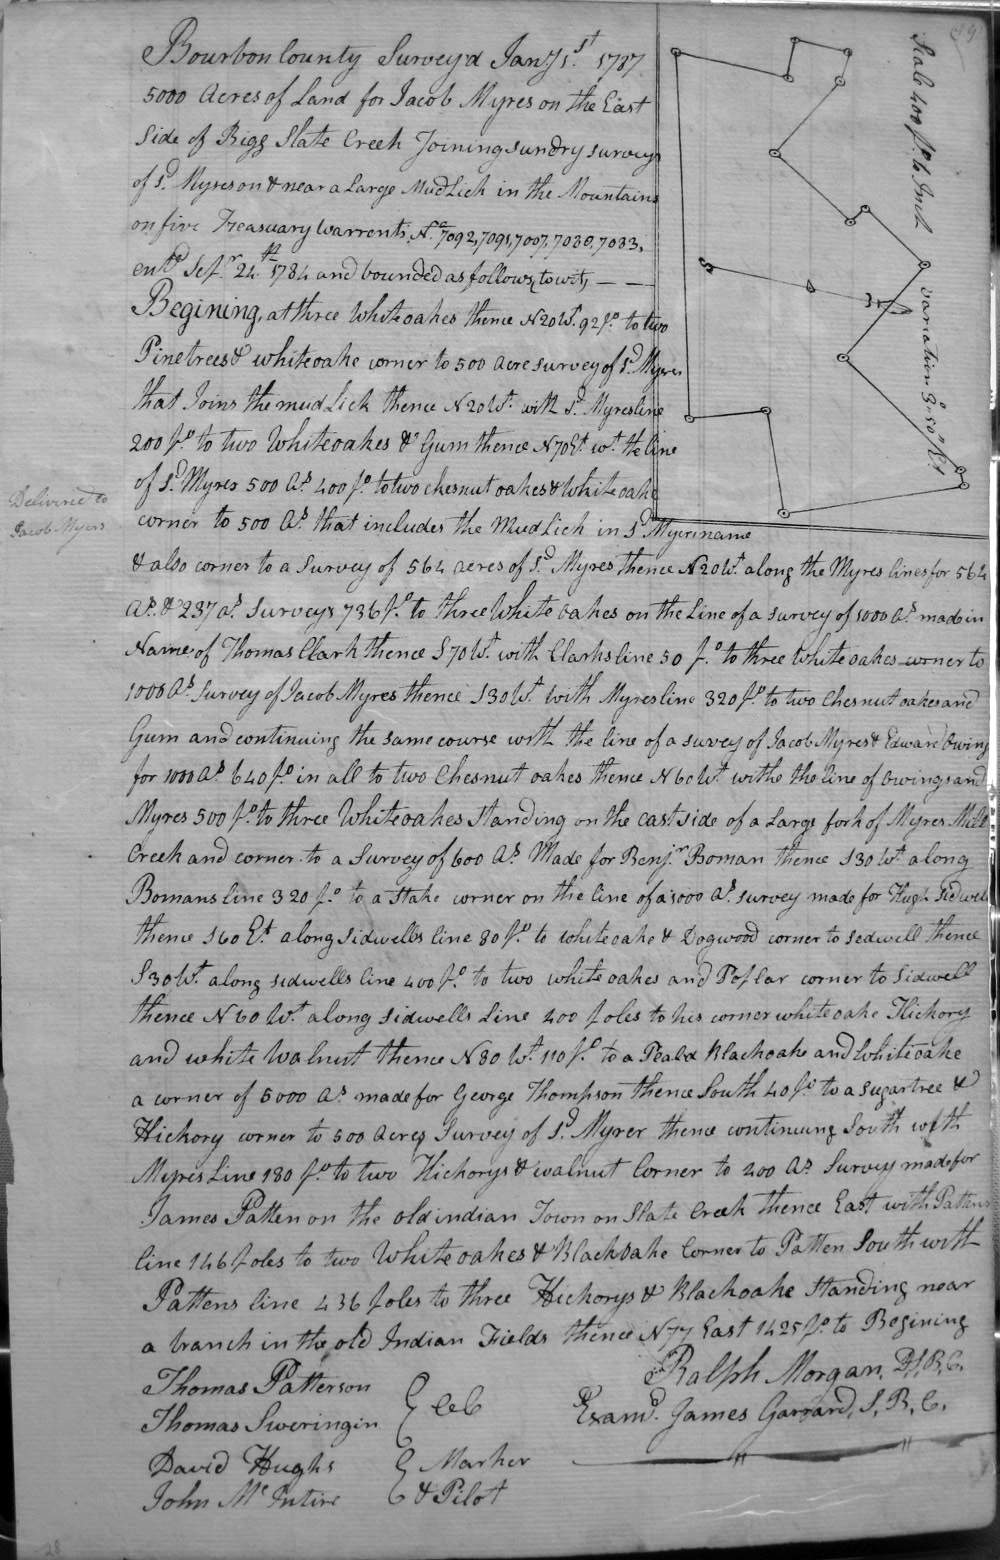 Bourbon County Survey'd Jany 1st 1787
5000 Acres of Land for Jacob Myres on the East
Side of Bigg Slate Creek Joining sundry surveys
of sd Myres on & near a Large Mud Lick in the Mountains
on five Treasuary Warrents, No 7092, 7091, 7007, 7030, 7033,
entd Sepr 24th 1784 and bounded as follows, to wit, — —
Begining, at three White oakes thence N20Wt 92 po to two
Pinetrees & white oake corner to 500 acre survey of sd Myres
that Joins the mud Lick thence N20Wt with sd Myres line
200 po to two White oakes & Gum thence N70Et wt the line
of sd Myres 500 As 400 po to two chesnut oakes & White oake
corner to 500 As that includes the Mud Lick in sd Myers name
& also corner to a Survey of 564 acres of sd Myres thence N20Wt along the Myres lines for 564
As & 237 as Surveys 736 po to three White oakes on the Line of a survey of 1000 As made in
Name of Thomas Clark thence S70Wt with Clarks line 50 po to three White oakes corner to
1000 As Survey of Jacob Myres thence S30Wt with Myres line 320 po to two Chesnut oakes and
Gum and continuing the same course with the line of a survey of Jacob Myres & Edward Owings
for 1000 As 640 po in all to two Chesnut oakes thence N60Wt withe the line of Owings and
Myres 500 po to three White oakes Standing on the east side of a Large fork of Myres Mill
Creek and corner to a Survey of 600 As Made for Benjr Boman thence S30Wt along
Bomans line 320 po to a Stake corner on the line of a 1000 As survey made for Hugh Sidwell
thence S60Et along Sidwells line 80 po to white oake & Dogwood corner to Sedwell thence
S30Wt along sidwells line 400 po to two white oakes and Poplar corner to Sidwell
thence N60Wt along Sidwells Line 400 poles to his corner white oake Hickory
and white Walnut thence N80Wt 110 po to a Blackoake and White oake
a corner of 5000 As made for George Thompson thence South 40 po to a sugartree &
Hickory corner to 500 acres Survey of sd Myrer thence continuing South with
Myres Line 180 po to two Hickorys & walnut Corner to 400 As Survey made for
James Patten on the old indian Town on Slate Creek thence East with Pattens
line 146 poles to two White oakes & Black oake Corner to Patten South with
Pattens line 436 poles to three Hickorys & Blackoake Standing near
a branch in the old Indian Fields thence N77 East 1425 po to Begining
Ralph Morgan, D.S.B.C.
Examd. James Garrard, S.B.C.
Thomas Patterson
Thomas Sweringin
CCs
David Hughs
John McIntire
Marker
& Pilot
Delivered to
Jacob Myers
Scale 400 po to Inch
Variation
28